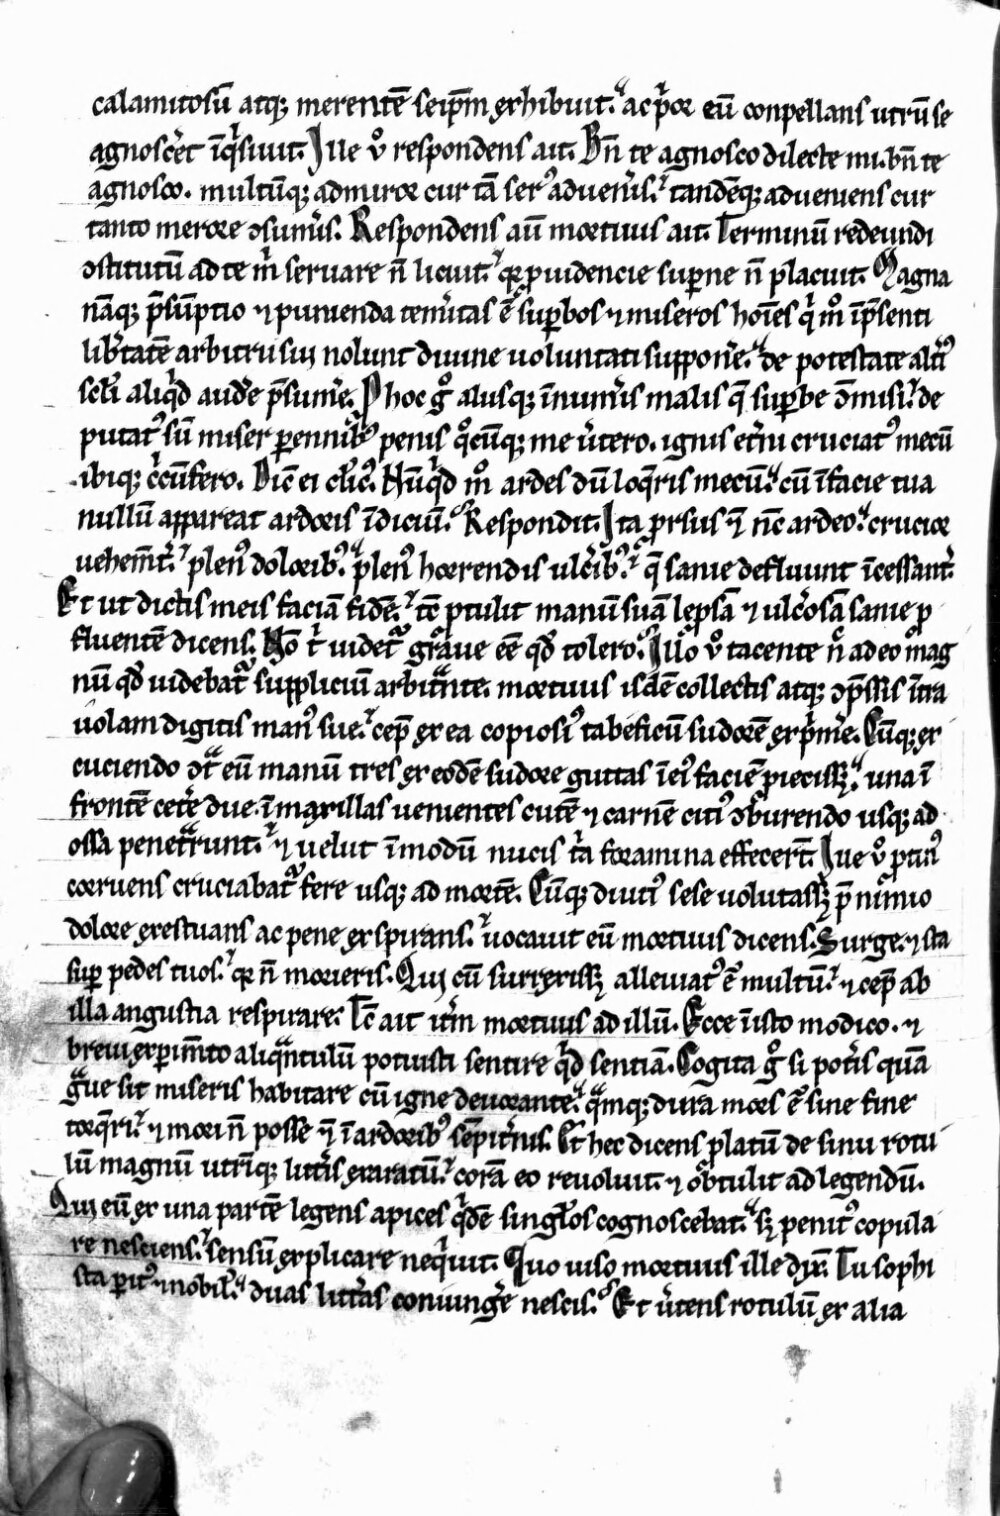 calamitosū atq; merentē seip̄m exhibuit. ac p̓or eū conpellans utrū se
agnosc̓et īq̓siuit. Ille ů respondens ait. Bn̄ te agnosco dilecte mi. bn̄ te
agnosco. multūq; admiror cur tā serꝰ aduen̓is. tandēq; adueniens cur
tanto merore ɔsum̓is. Respondens aū mortuus ait. Terminū redeundi
ɔstitutū ad te m̓ seruare n̄ licuit. qꝛ ꝓuidencie sup̄ne n̄ placuit. Magna
nāq; p̄sūptio ⁊ punienda tem̓itas ē sup̄bos ⁊ miseros hoīes q̓ m̊ īp̄senti
lib̓tatē arbitrii sui nolunt diuine uoluntati suppon̓e. de potestate alt̓iꝰ
sc̄li aliq̓d aud̓e p̄sum̓e. P hoc g̊ aliisq; īnum̓is malis q̄ sup̄be ɔmisi. de
putatꝰ sū miser p̄ennibꝰ penis q̊cūq; me ů̓tero. ignis et̓ni cruciatꝰ mecū
ibiq; c̓cūfero. Dic̄ ei cl̓icꝰ. Nūq̓d m̊ ardes dū loq̓ris mecū. cū ī facie tua
nullū appareat ardoris īdiciū. Respondit. Ita prsus ⁊ nc̄ ardeo. crucior
uehem̄t̓. plenꝰ doloribꝰ. plenꝰ horrendis ulc̓ibꝰ. q̄ sanie defluunt īcessant̓.
Et ut dictis meis faciā fidē. tc̄ ꝓtulit manū suā lepsā ⁊ ulc̓osā sanie ꝓ
fluentē dicens. Nō t̓ uidet᷑ graue eē qd̓ tolero. Illo ů tacente n̄ adeo mag
nū qd̓ videbat᷑ suppliciū arbitrante. mortuus isdē collectis atq; ɔp̄ssis īt̓a
uolam digitis manꝰ sue. cep̄ ex ea copiosiꝰ tabeficū sudorē exp̓m̓e. Cūq; ex
cuciendo ɔt̓ eū manū tres ex eodē sudore guttas ī eiꝰ faciē ꝓiecissꝫ. una ī
frontē cet̓e due. ī maxillas uenientes cutē ⁊ carnē citiꝰ ɔburendo usq; ad
ossa penetrarunt. ⁊ velut ī modū nucis t̓a foramina effecer̄t. Ille ů ꝓtinꝰ
corruens cruciabat᷑ fere usq; ad mortē. Cūq; diutiꝰ sese uolutassꝫ p̄ nimio
dolore exestuans ac pene exspirans. uocauit eū mortuus dicens. Surge. ⁊ sta
sup̄ pedes tuos. qꝛ n̄ morieris. Qui cū surrexissꝫ alleuiatꝰ ē multū. ⁊ cep̄ ab
illa angustia respirare. Tc̄ ait it̓m mortuus ad illū. Ecce ī isto modico. ⁊
breui exp̄im̄to aliqᵃntulū potuisti sentire q̓d sentiā. Cogita g̊ si pot̓is quā
gᵃue sit miseris habitare cū igne deuorante. qᵃmq; dura mors ē sine fine
torq̄ri. ⁊ mori n̄ posse ⁊ ī ardoribꝰ sēpit̓nis. Et hec dicens platū de sinu rotu
lū magnū utrīq; litt̓is exaratū. corā eo reuoluit. ⁊ obtulit ad legendū.
Qui eū ex una partē legens apices q̓dē singl̓os cognoscebat. sꝫ penitꝰ copula
re nesciens. sensū explicare neq̓uit. Quo uiso mortuus ille dix̄. Tu sophi
sta p̄itꝰ ⁊ nobil̓. duas litt̓as coniung̓e nescis. Et ů̓tens rotulū ex alia